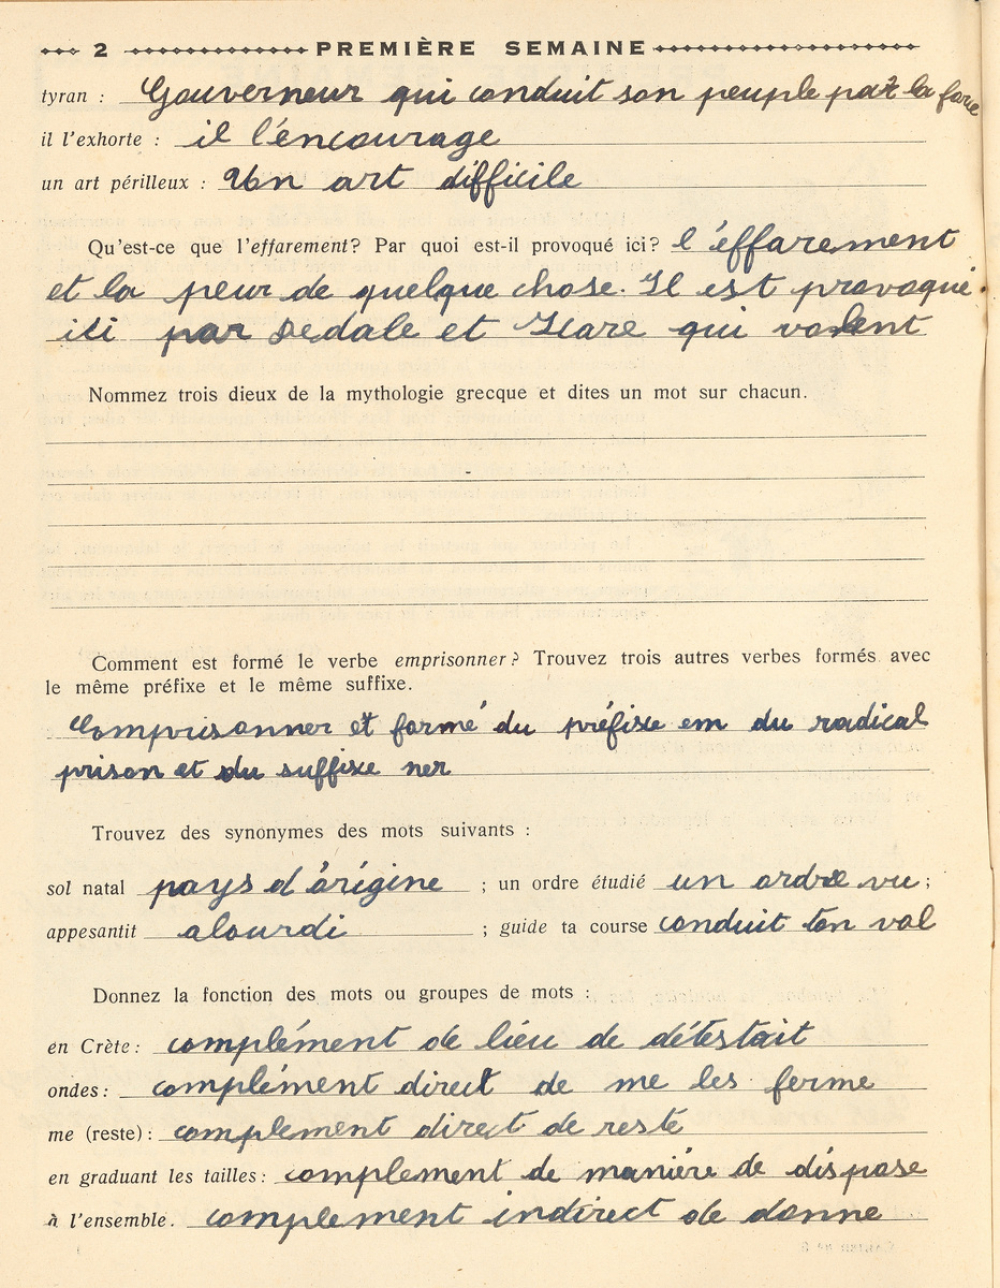 2 PREMIÈRE SEMAINE
tyran : Gouverneur qui conduit son peuple par la force
il l'exhorte : il l'éncourage
un art périlleux : Un art difficile
Qu'est-ce que l'effarement? Par quoi est-il provoqué ici? l'éffarement
et la peur de quelque chose. Il est provoqué
ici par Dedale et Icare qui volent
Nommez trois dieux de la mythologie grecque et dites un mot sur chacun.
Comment est formé le verbe emprisonner? Trouvez trois autres verbes formés avec
le même préfixe et le même suffixe.
emprisonner et formé du préfixe em du radical
prison et du suffixe ner
Trouvez des synonymes des mots suivants :
sol natal pays d'órigine ; un ordre étudié un ordre vu ;
appesantit alourdi ; guide ta course conduit ton vol
Donnez la fonction des mots ou groupes de mots :
en Crète : complément de liéu de détestait
ondes : complément direct de me les ferme
me (reste) : complement direct de reste
en graduant les tailles : complement de maniére de dispose
à l'ensemble. complement indirect de donne